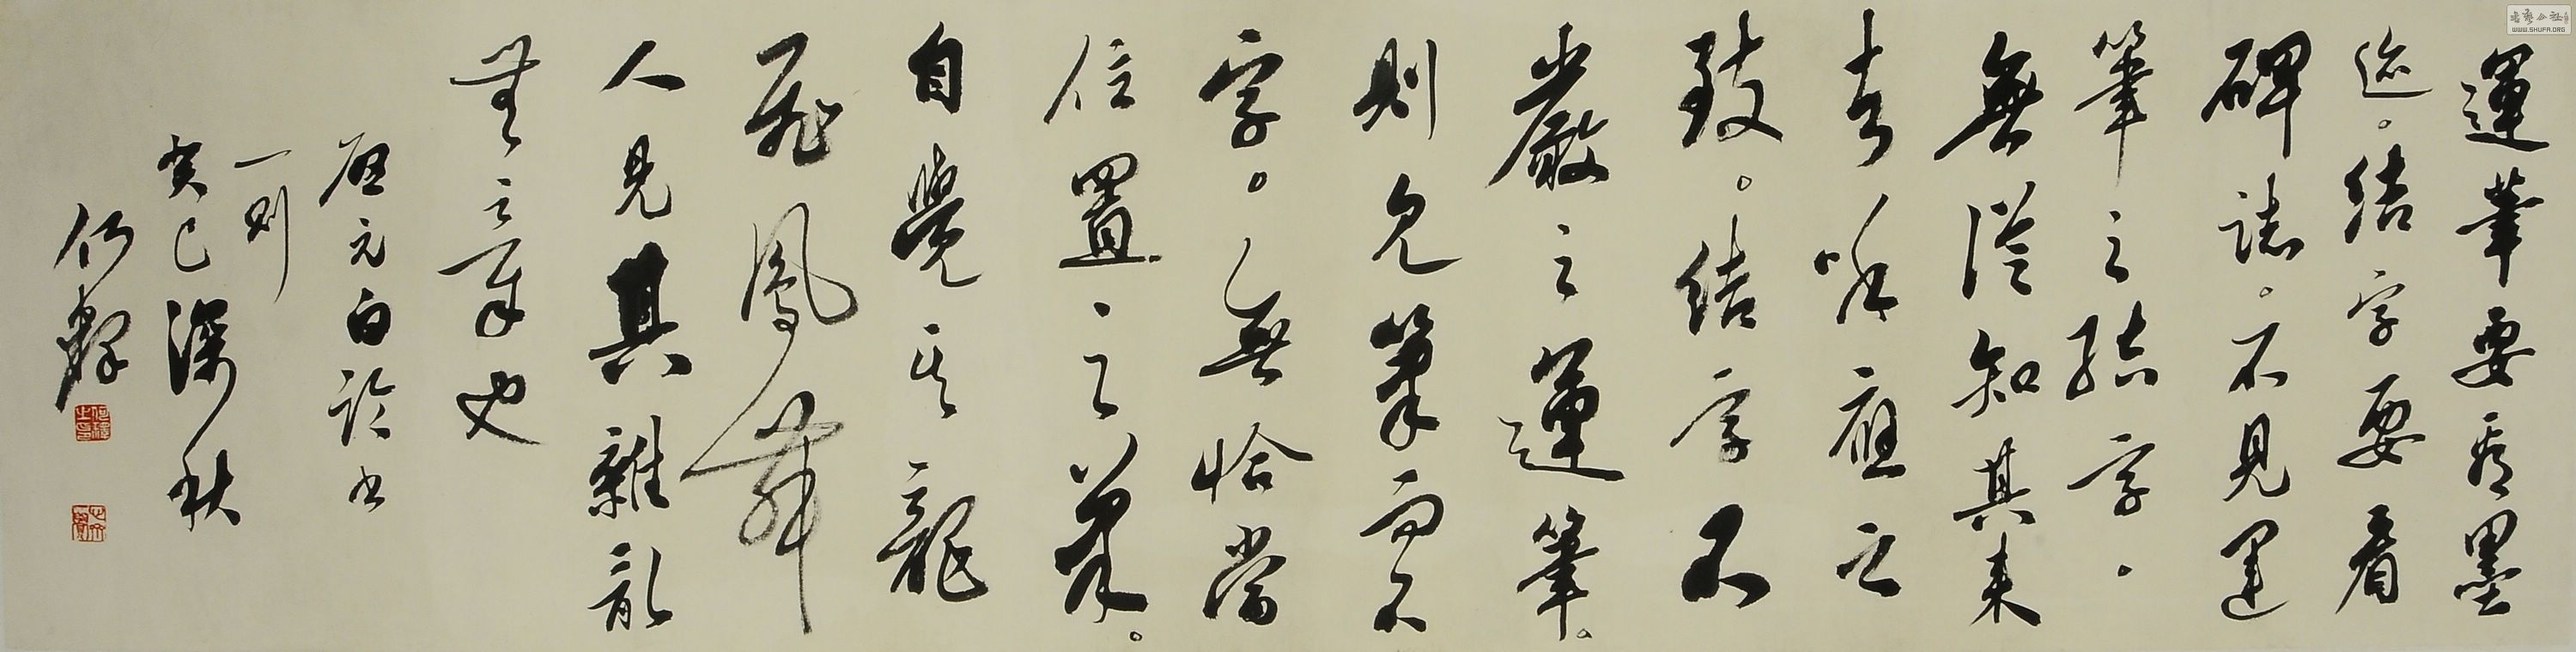 運筆要看墨
迹。结字要看
碑誌。不見運
筆之结字。
無從知其來
去呼應之
致。结字不
嚴之運筆。
則見筆而不
字。無恰當
位置之筆。
自覺其龍
飛鳳舞
人見其雜亂
無章也
啟元白論書
一則
癸巳深秋
何
WWW.SHUFA.ORG